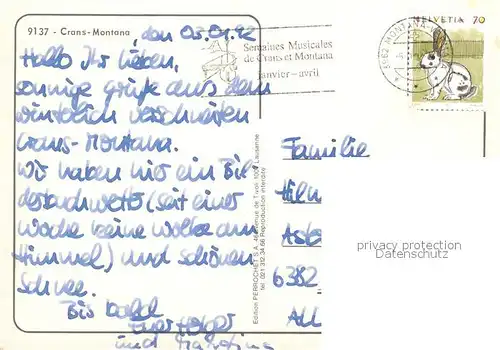 9137 - Crans-Montana
, den 03.01.92
Hallo Ihr lieben,
sonnige grüße aus dem
winterlich verschneiten
Crans-Montana.
Wir haben hier ein Bil-
derbuchwetter (seit einer
Woche keine Wolke am
Himmel) und schönen
Schnee.
Bis bald
Euer Holger
und
Semaines Musicales
de Crans et Montana
janvier - avril
3962 MONTANA-
HELVETIA 70
Edition PERROCHET S.A. 46 avenue de Tivoli 1007 Lausanne
tel 021 312 34 66 Reproduction interdite
Familie
6382
privacy protection